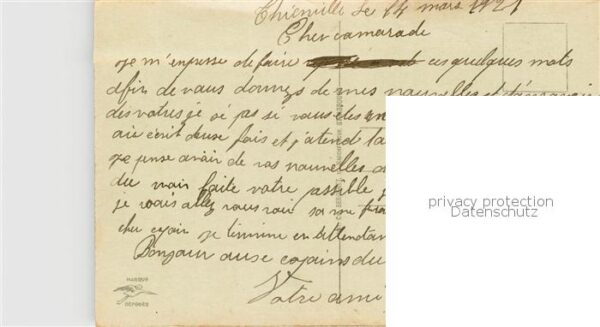 Thionville le 14 mars 1921
Cher camarade
Je m'empresse de faire ces quelques mots
afin de vous donnez de mes nouvelles et
des votres je sé pas si vous
aie écrit deuse fois et j'atend
Je pense avoir de vos nouvelles
du moin faite votre possible
je vais allez vous voir sa me
cher copain je termine en attendant
Bonjour ause copains du
Votre ami
privacy protection
Datenschutz
MARQUE
DÉPOSÉE